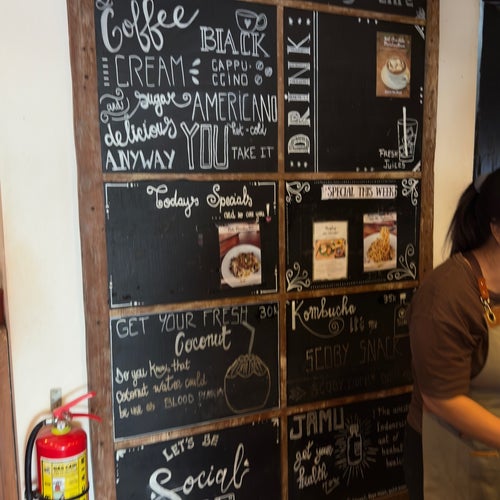 Coffee
BLACK
CREAM
CAPPU-
CCINO
and sugar
AMERICANO
delicious
YOU
hot - cold
ANYWAY
TAKE IT
DRINK:
FRESH
JUICES
Today's Specials
and so are you!
SPECIAL THIS WEEK
GET YOUR FRESH 30K
Coconut
Do you know that
Coconut water could
be use as BLOOD PLASMA
Kombucha
SCOBY SNACK
LET'S BE
Social
JAMU
get your
health